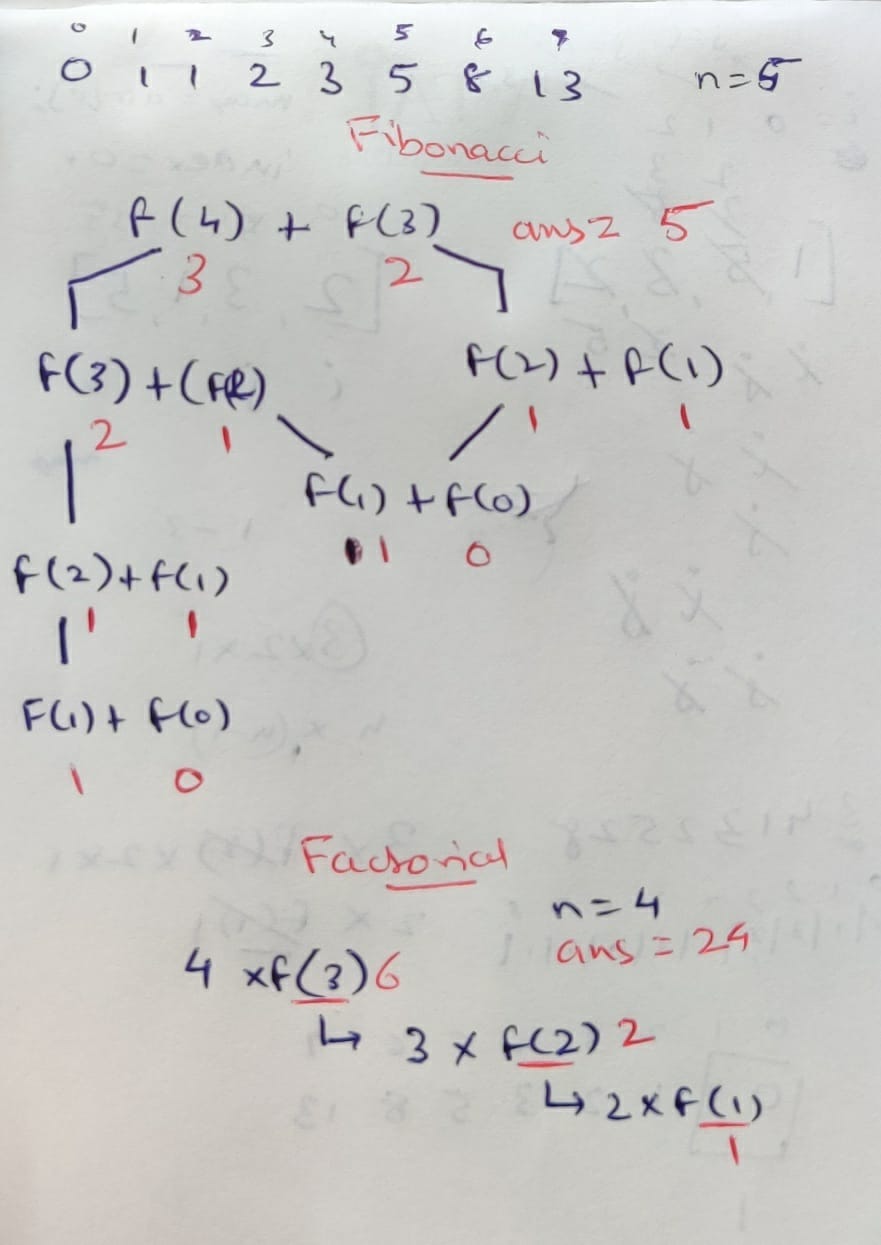 0 1 2 3 4 5 6 7
0 1 1 2 3 5 8 13 n=5
Fibonacci
f(4) + f(3) ans = 5
3 2
f(3) + (f(2) f(2) + f(1)
2 1 1 1
f(1) + f(0)
1 0
f(2) + f(1)
1 1
F(1) + f(0)
1 0
Factorial
n=4
ans = 24
4 xf(3) 6
↳ 3 x f(2) 2
↳ 2 x f(1)
1